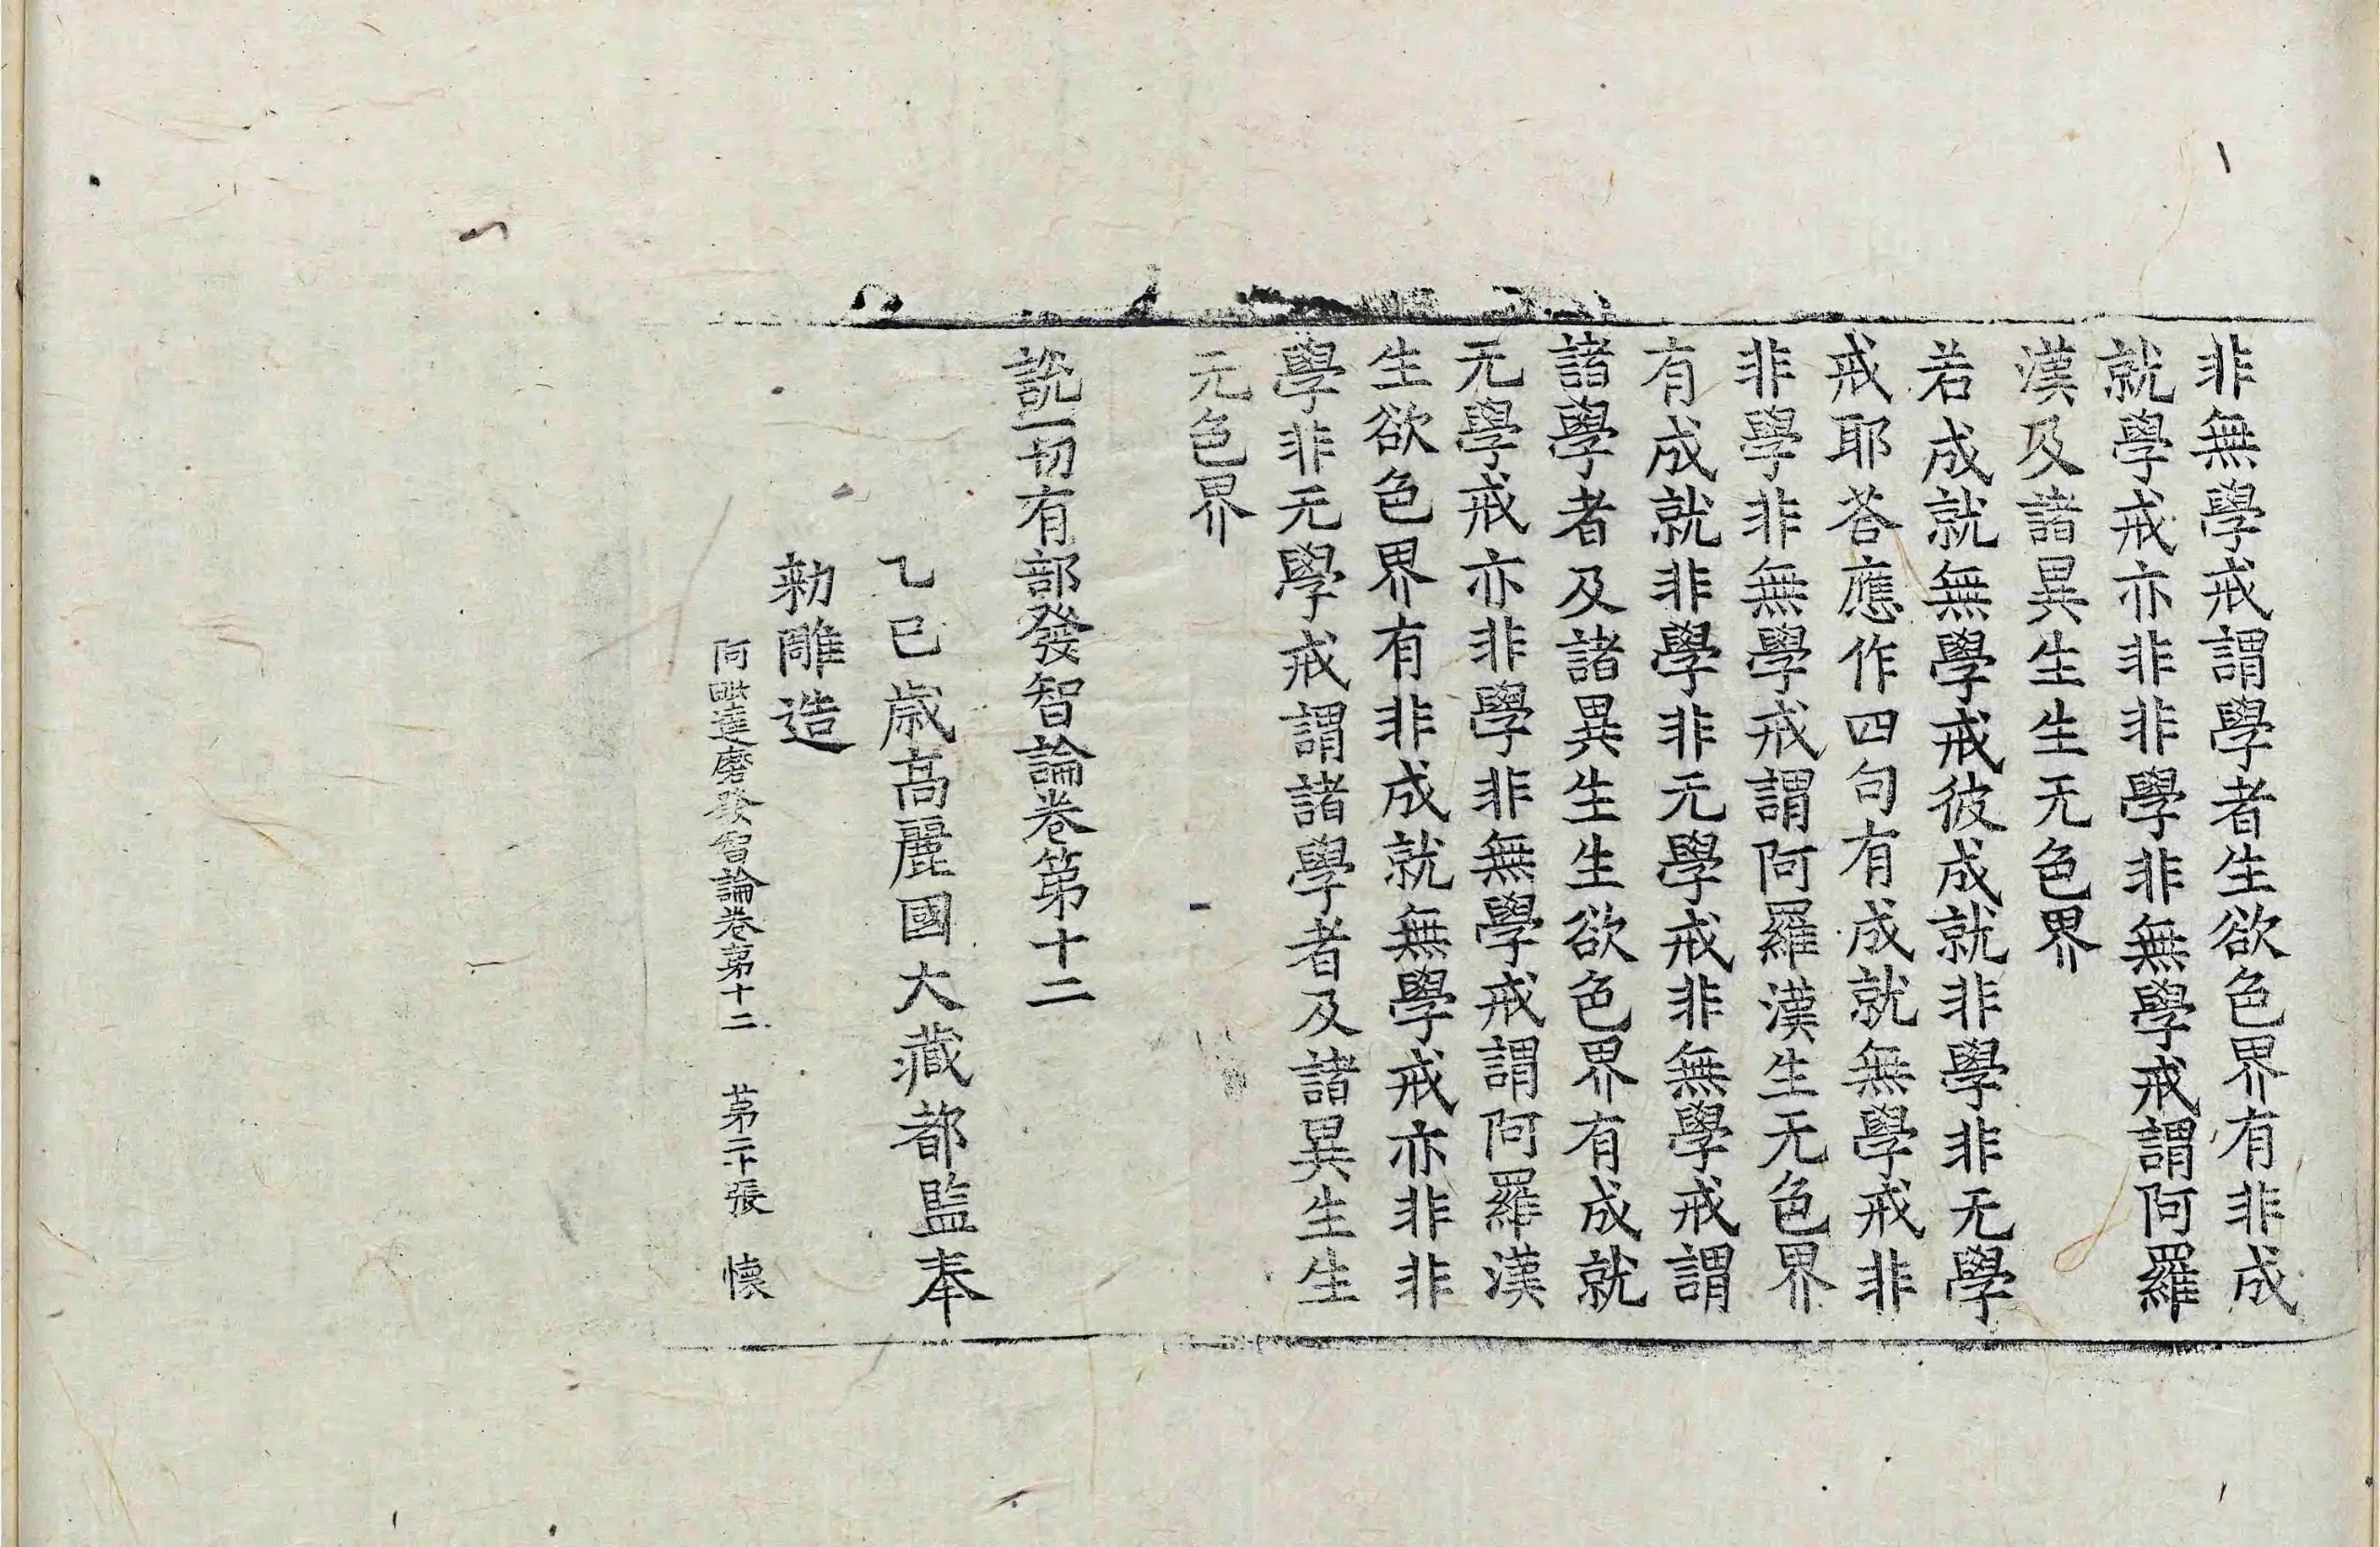 非無學戒謂學者生欲色界有非成
就學戒亦非非學非無學戒謂阿羅
漢及諸異生生无色界
若成就無學戒彼成就非學非无學
戒耶荅應作四句有成就無學戒非
非學非無學戒謂阿羅漢生无色界
有成就非學非无學戒非無學戒謂
諸學者及諸異生生欲色界有成就
无學戒亦非學非無學戒謂阿羅漢
生欲色界有非成就無學戒亦非非
學非无學戒謂諸學者及諸異生生
无色界
說一切有部發智論卷第十二
乙巳歳高麗國大藏都監奉
勑雕造
阿毗達磨發智論卷第十二 第二十張 懷